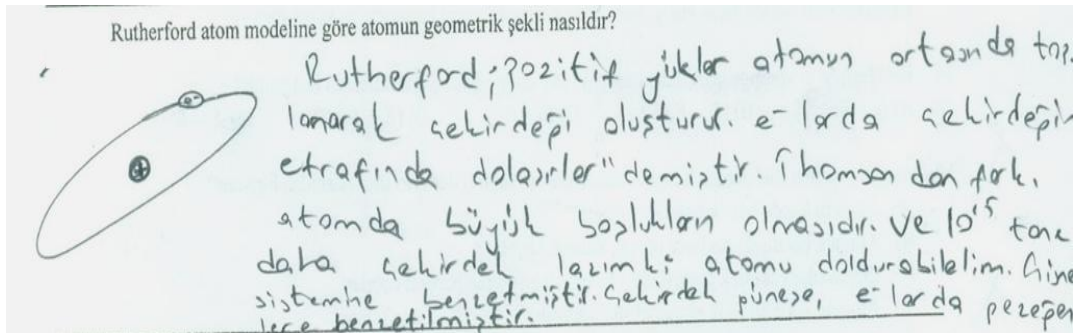 Rutherford atom modeline göre atomun geometrik şekli nasıldır?
Rutherford; pozitif yükler atomun ortasında top-
lanarak çekirdeği oluşturur. e⁻ larda çekirdeğin
etrafında dolaşırlar" demiştir. Thomson dan farkı,
atomda büyük boşlukların olmasıdır. Ve 10¹⁵ tane
daha çekirdek lazımki atomu doldurabilelim. Güneş
sistemine benzetmiştir. Çekirdek güneşe, e⁻ lar da gezegen
lere benzetilmiştir.
e⁻
+